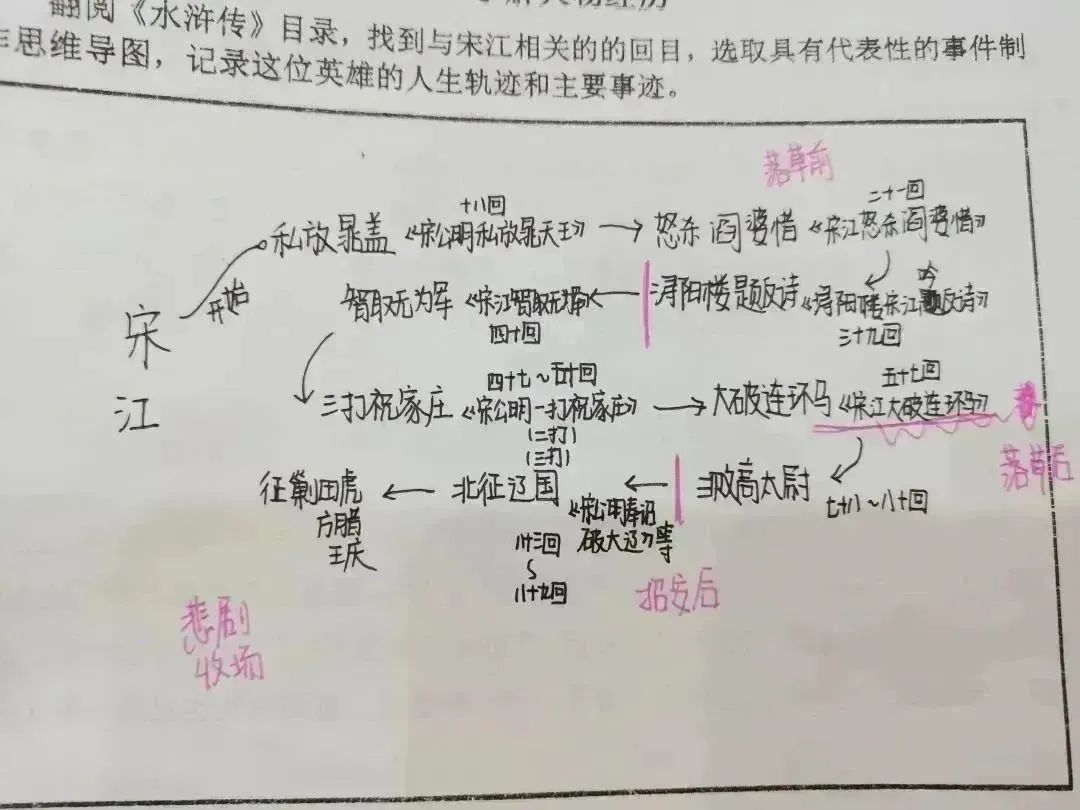 翻阅《水浒传》目录，找到与宋江相关的的回目，选取具有代表性的事件制
思维导图，记录这位英雄的人生轨迹和主要事迹。
落草前
十八回
二十一回
私放晁盖《宋公明私放晁天王》→怒杀阎婆惜《宋江怒杀阎婆惜》
开始
宋江
智取无为军《宋江智取无为军》←浔阳楼题反诗《浔阳楼宋江吟反诗》
四十回
三十九回
四十七~五十回
五十七回
三打祝家庄《宋公明一打祝家庄》→大破连环马《宋江大破连环马》
(二打)
(三打)
落草后
征剿田虎←北征辽国←三败高太尉
七十八~八十回
方腊
王庆
《宋公明奉诏
破大辽》等
八十三回
八十九回
招安后
悲剧
收场